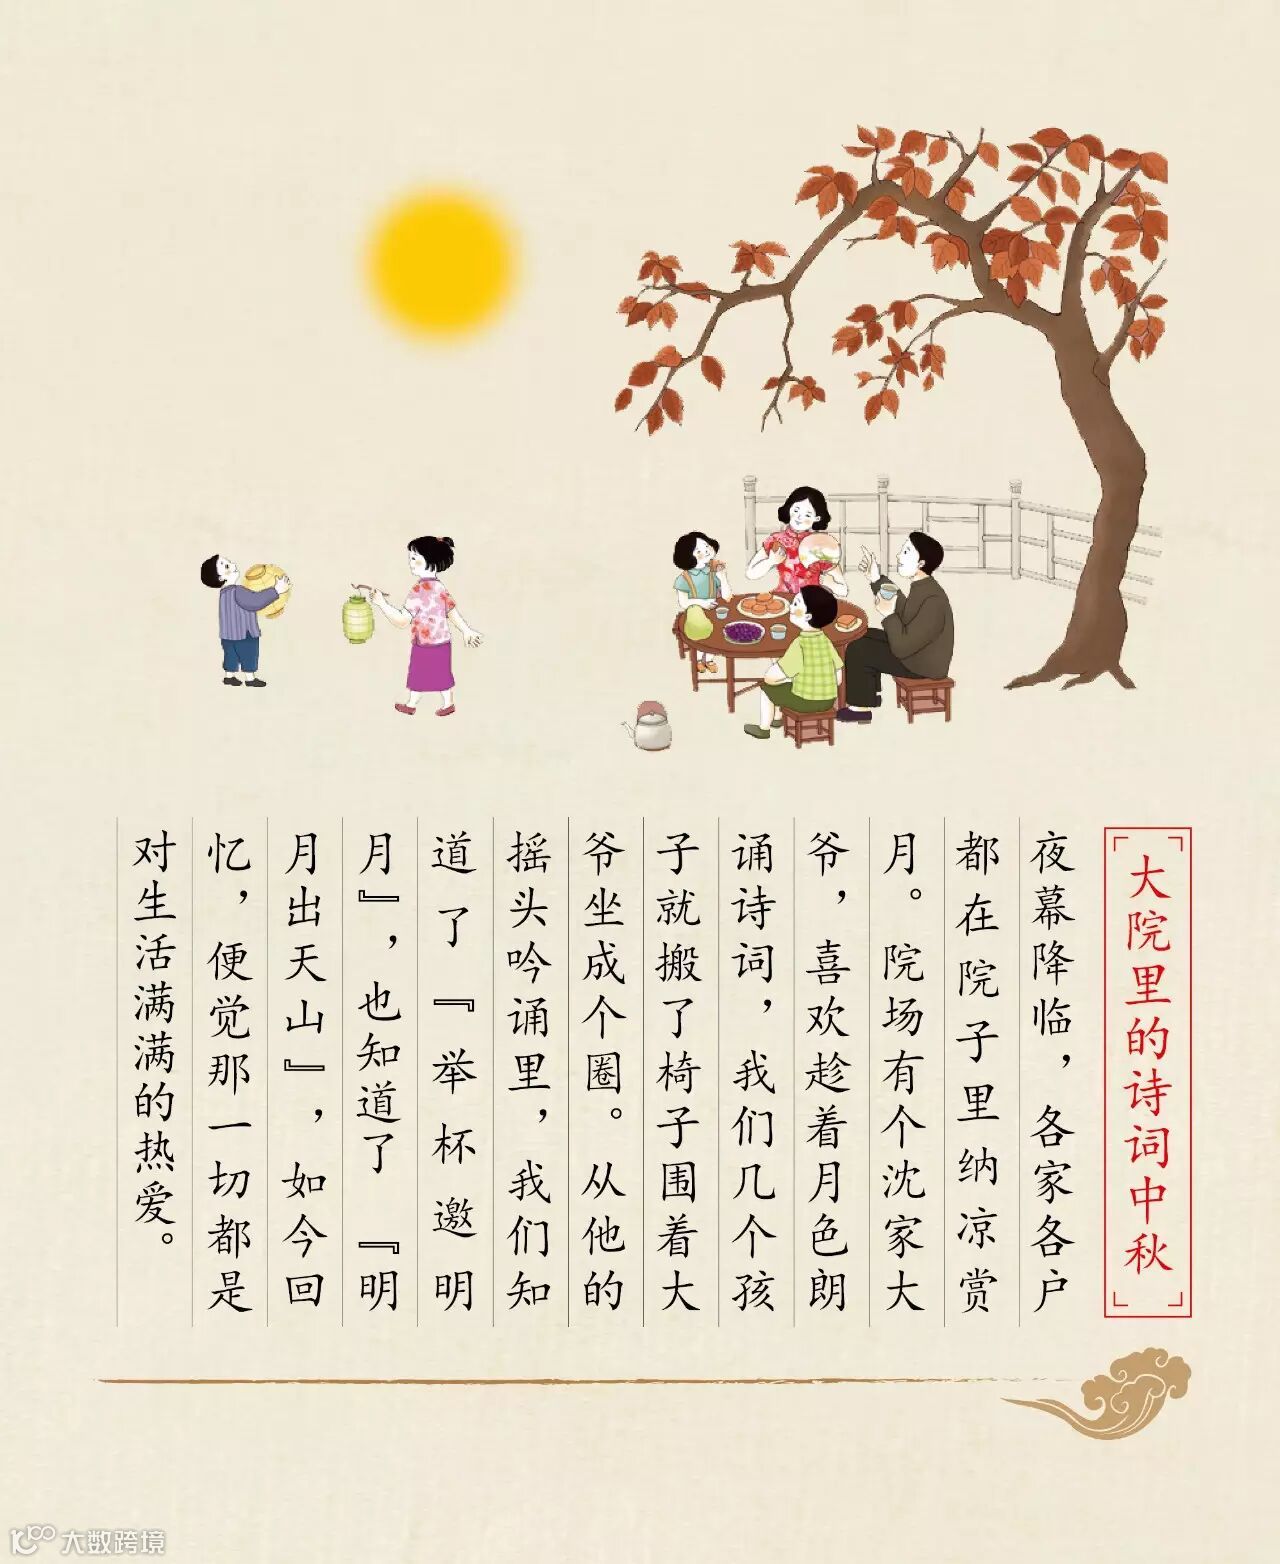 大院里的诗词中秋
夜幕降临，各家各户
都在院子里纳凉赏
月。院场有个沈家大
爷，喜欢趁着月色朗
诵诗词，我们几个孩
子就搬了椅子围着大
爷坐成个圈。从他的
摇头吟诵里，我们知
道了『举杯邀明
月』，也知道了『明
月出天山』，如今回
忆，便觉那一切都是
对生活满满的热爱。
大数跨境